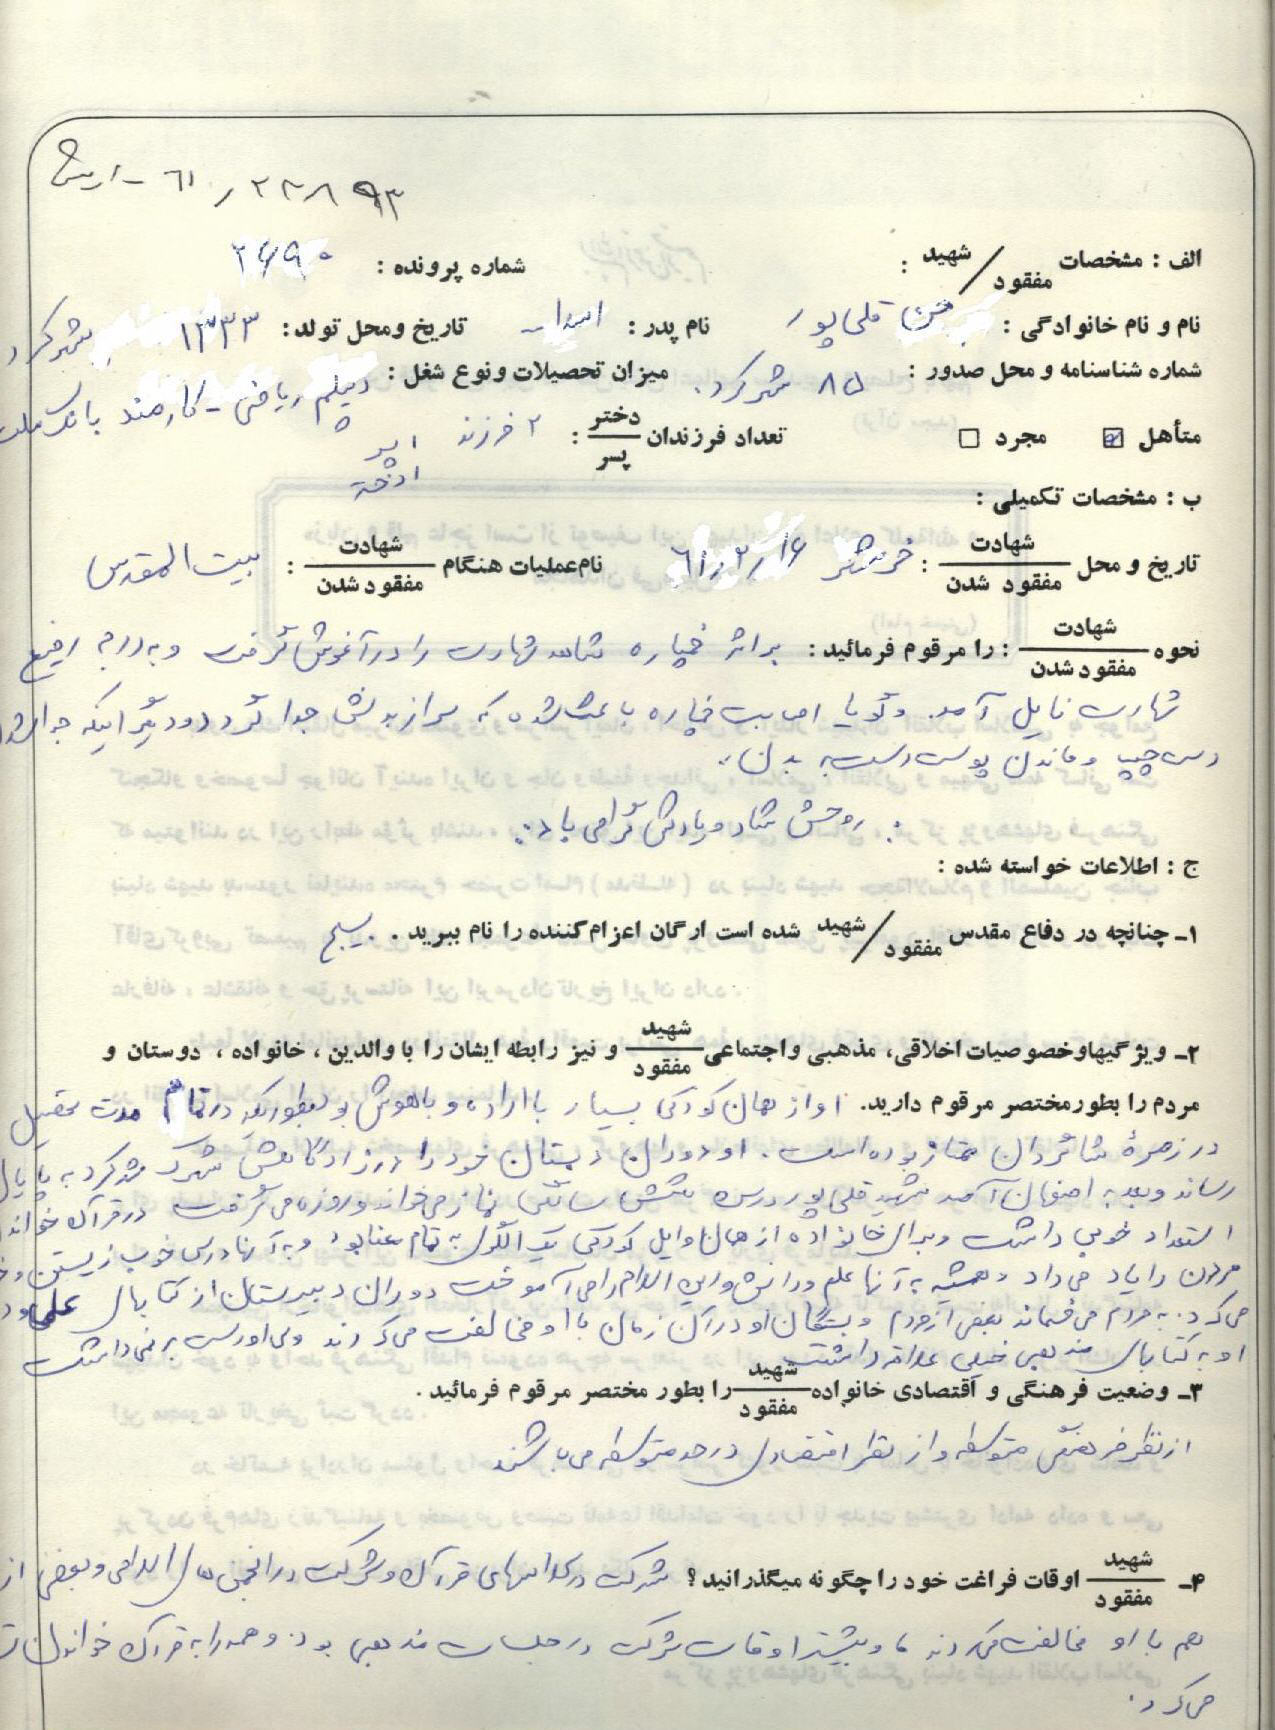 ۲۲۸۹۳ / ۶۱ - ارتش
الف : مشخصات شهید / مفقود : شماره پرونده : ۲۶۹۰
نام و نام خانوادگی : حسن قلی پور نام پدر : تاریخ ومحل تولد : ۱۳۳۳ شهرکرد
شماره شناسنامه و محل صدور : ۸۵ شهرکرد . میزان تحصیلات و نوع شغل : دیپلم ریاضی - کارمند بانک ملت
متأهل مجرد تعداد فرزندان دختر / پسر : ۲ فرزند ۱ پسر
۱ دختر
ب : مشخصات تکمیلی :
تاریخ و محل شهادت / مفقود شدن : خرمشهر ۶۱/۲/۱۶ نام عملیات هنگام شهادت / مفقود شدن : بیت المقدس
نحوه شهادت / مفقود شدن : را مرقوم فرمائید : براثر خمپاره شاهد شهادت را درآغوش گرفت و به درجه رفیع
شهادت نایل آمد . و گویا اصابت خمپاره باعث شده که سر از بدنش جدا گردد و دیگر اینکه جدا شدن
دست چپ و ماندن پوست دست به بدن .
روحش شاد و یادش گرامی باد .
ج : اطلاعات خواسته شده :
۱ـ چنانچه در دفاع مقدس شهید / مفقود شده است ارگان اعزام کننده را نام ببرید . بسیج
۲ـ ویژگیهاوخصوصیات اخلاقی، مذهبی واجتماعی شهید / مفقود و نیز رابطه ایشان را با والدین ، خانواده ، دوستان و
مردم را بطورمختصر مرقوم دارید. او از همان کودکی بسیار با اراده و باهوش بود بطوریکه در تمام مدت تحصیل
در زمرهٔ شاگردان ممتاز بوده است . او دوران دبستان خود را در زادگاهش شهرکرد به پایان
رساند وبعد به اصفهان آمد شهید قلی پور درسن شش سالگی نماز می خواند و روزه می گرفت در قرآن خواندن
استعداد خوبی داشت و برای خانواده از همان اوایل کودکی یک الگوی به تمام معنا بود و به آنها درس خوب زیستن و خوب
مردن را یاد می داد و همیشه به آنها علم و دانش و اسلام را می آموخت دوران دبیرستان از کتابهای علمی
می کرد . به مردم می فهماند بعضی از مردم و بستگان او در آن زمان با او مخالفت می کردند ولی او دست بر نمی داشت
او به کتابهای مذهبی خیلی علاقه داشت
۳ـ وضعیت فرهنگی و اقتصادی خانواده شهید / مفقود را بطور مختصر مرقوم فرمائید .
از نظر فرهنگی متوسطه و از نظر اقتصادی در حد متوسطه می باشند
۴ـ شهید / مفقود اوقات فراغت خود را چگونه میگذرانید ؟ شرکت در کلاسهای قرآن و شرکت در انجمن های اسلامی و بعضی از
هم با او مخالفت می کردند و بیشتر اوقات شرکت در جلسات مذهبی بود . و همه را به قرآن خواندن
می کرد .